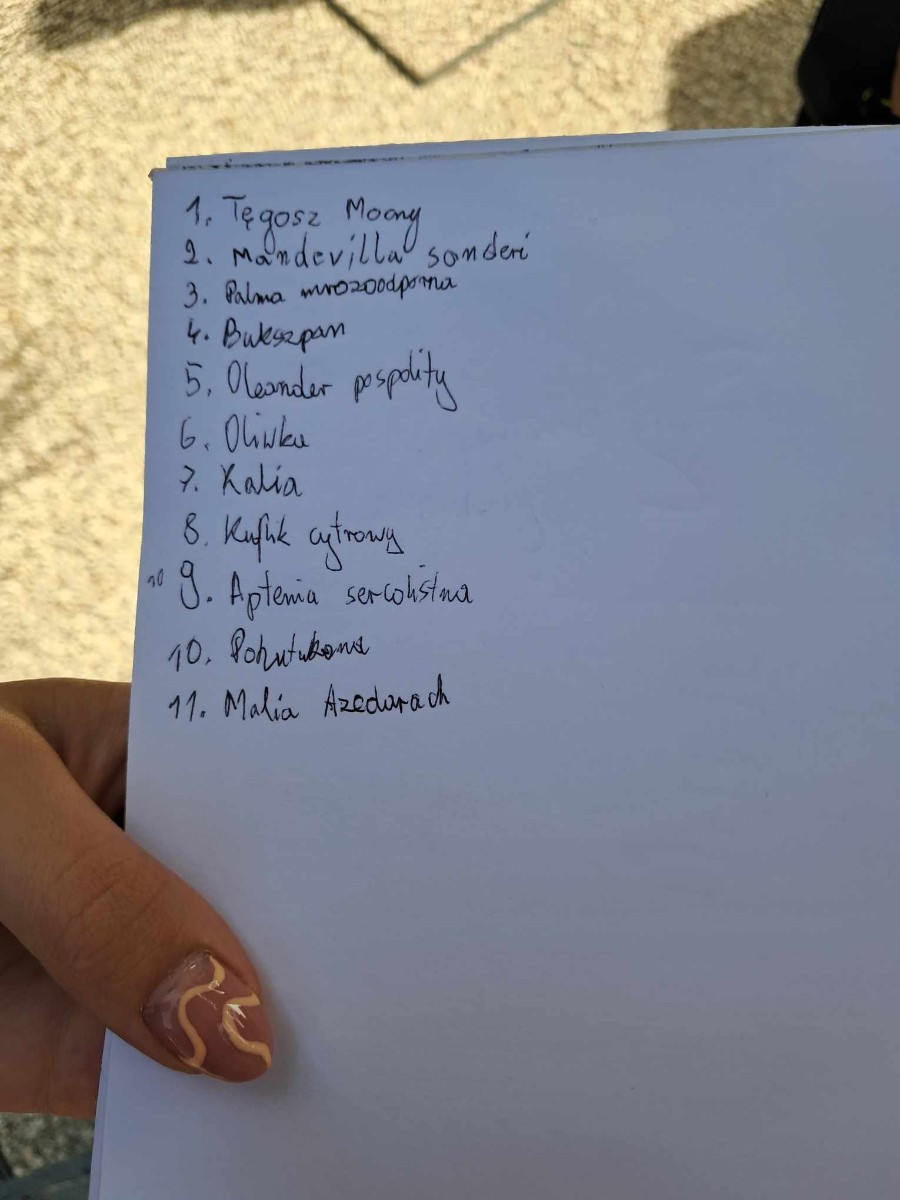 1. Tęgosz Moony
2. Mandevilla sanderi
3. Palma mrozoodporna
4. Bukszpan
5. Oleander pospolity
6. Oliwka
7. Kalia
8. Kuflik cytrowy
10 9. Aptenia sercolistna
10. Pohutukawa
11. Malia Azedarach